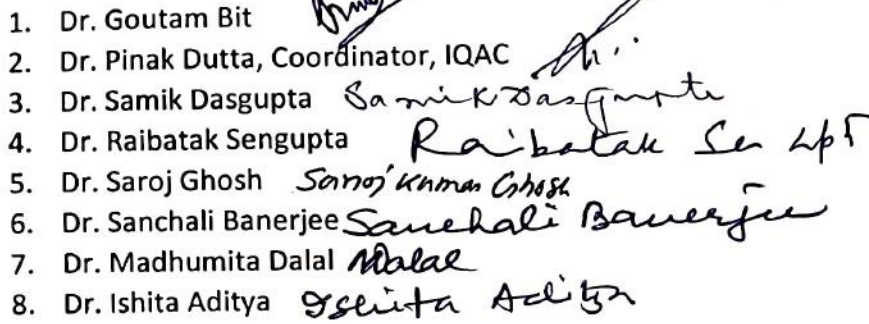 1. Dr. Goutam Bit
2. Dr. Pinak Dutta, Coordinator, IQAC
3. Dr. Samik Dasgupta Samik Dasgupta
4. Dr. Raibatak Sengupta Raibatak Sen Gupt
5. Dr. Saroj Ghosh Saroj Kumar Ghosh
6. Dr. Sanchali Banerjee Sanchali Banerjee
7. Dr. Madhumita Dalal MDalal
8. Dr. Ishita Aditya Ishita Aditya